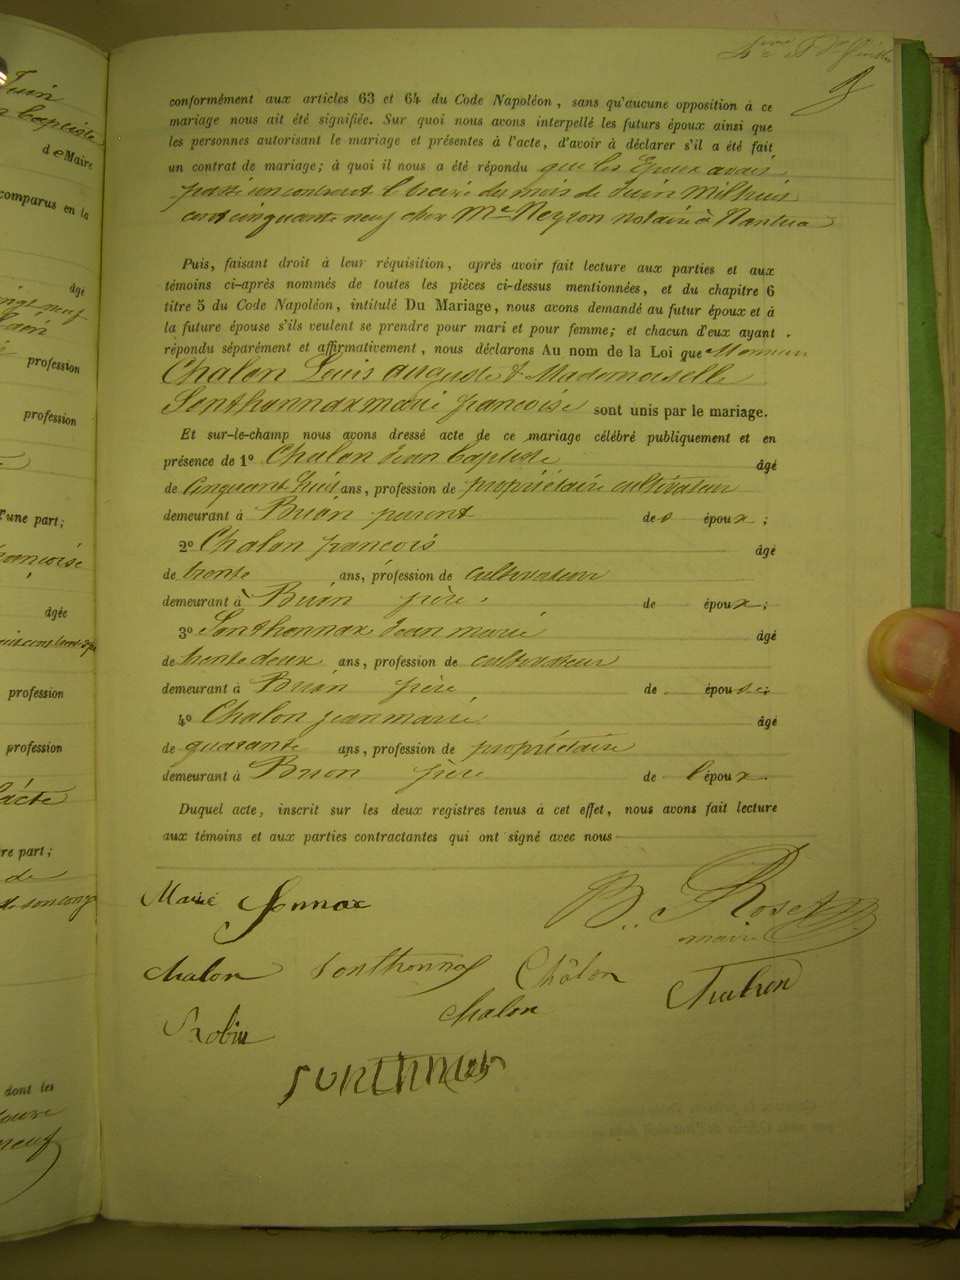 Juin
Baptiste
de Maire
comparus en la
âgé
profession
profession
d'une part;
françoise
âgée
profession
profession
l'acte
tre part;
de
dont les
neuf
conformément aux articles 63 et 64 du Code Napoléon, sans qu'aucune opposition à ce
mariage nous ait été signifiée. Sur quoi nous avons interpellé les futurs époux ainsi que
les personnes autorisant le mariage et présentes à l'acte, d'avoir à déclarer s'il a été fait
un contrat de mariage; à quoi il nous a été répondu que les Epoux avais
passé un contrat le treize du mois de Juin Mil huit
cent cinquante neuf chez Me Neyron notaire à Nantua
Puis, faisant droit à leur réquisition, après avoir fait lecture aux parties et aux
témoins ci-après nommés de toutes les pièces ci-dessus mentionnées, et du chapitre 6
titre 5 du Code Napoléon, intitulé Du Mariage, nous avons demandé au futur époux et à
la future épouse s'ils veulent se prendre pour mari et pour femme; et chacun d'eux ayant
répondu séparément et affirmativement, nous déclarons Au nom de la Loi que Monsieur
Chalon Louis auguste & Mademoiselle
Sonthonnax marie françoise sont unis par le mariage.
Et sur-le-champ nous avons dressé acte de ce mariage célébré publiquement et en
présence de 1º Chalon Jean Baptiste âgé
de Cinquant huit ans, profession de propriétaire cultivateur
demeurant à Brion parent des époux;
2º Chalon françois âgé
de trente ans, profession de cultivateur
demeurant à Brion frère. de époux;
3º Sonthonnax Jean marie âgé
de trente deux ans, profession de cultivateur
demeurant à Brion frère de épouse;
4º Chalon jean marie âgé
de quarante ans, profession de propriétaire
demeurant à Brion frère de l'époux.
Duquel acte, inscrit sur les deux registres tenus à cet effet, nous avons fait lecture
aux témoins et aux parties contractantes qui ont signé avec nous
Marie Sonnax B. Roset
maire
Chalon Sonthonnax Châlon Chalon
Robin Chalon